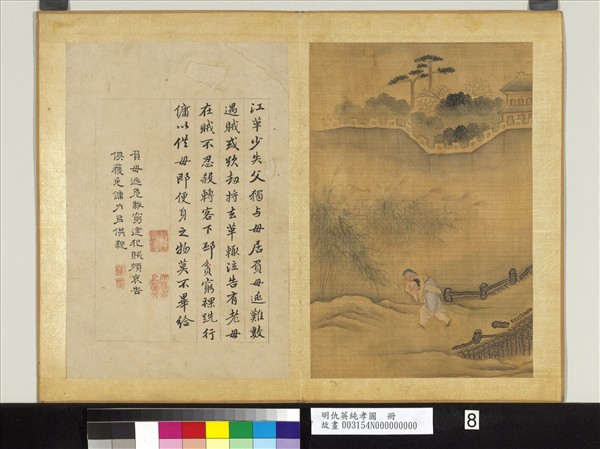 江革少失父獨与母居負母逃難數
遇賊或欲劫持去革輒泣告有老母
在賊不忍殺轉客下邳貧窮裸跣行
傭以供母即便身之物莫不畢給
負母逃危難窮途犯賊頻哀告
俱獲免傭力以供親
明仇英純孝圖 冊
故畫 003154N000000000
8